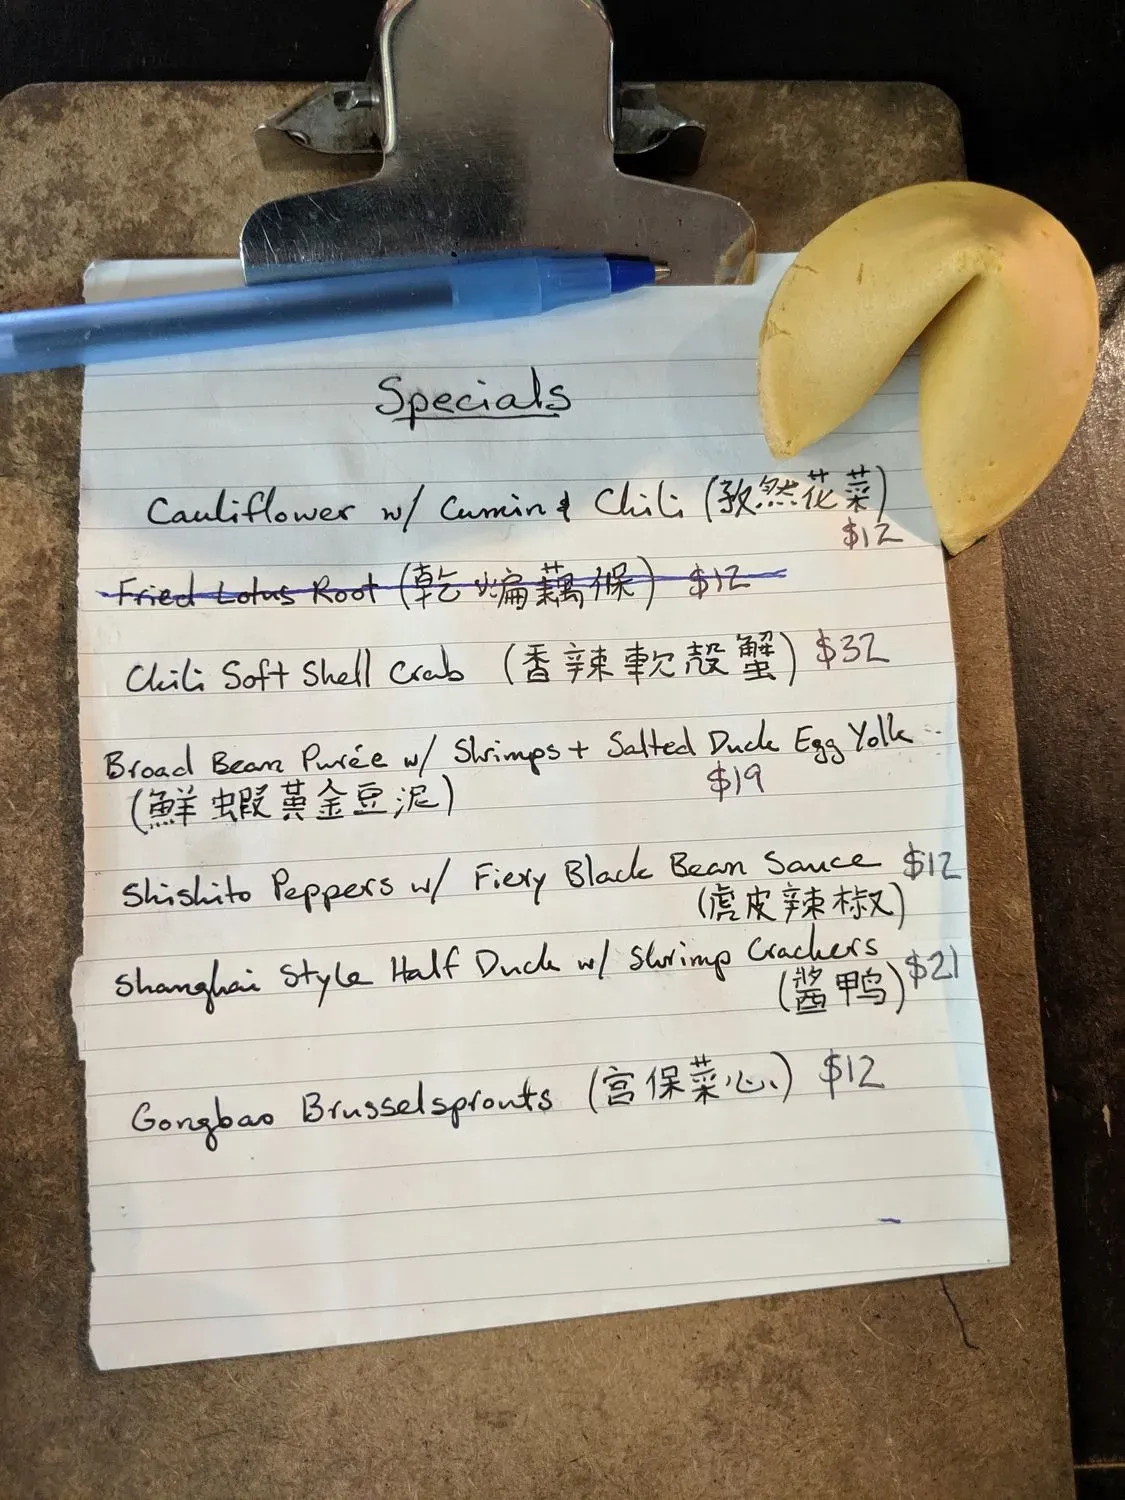 Specials
Cauliflower w/ Cumin & Chili (孜然花菜)
$12
Fried Lotus Root (乾煸藕條) $12
Chili Soft Shell Crab (香辣軟殼蟹) $32
Broad Bean Purée w/ Shrimps + Salted Duck Egg Yolk
(鮮蝦黃金豆泥) $19
Shishito Peppers w/ Fiery Black Bean Sauce $12
(虎皮辣椒)
Shanghai Style Half Duck w/ Shrimp Crackers
(醬鸭) $21
Gongbao Brusselsprouts (宫保菜心) $12